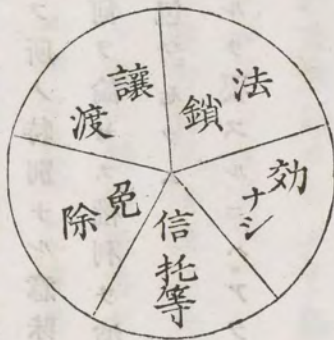 法鎖
効ナシ
信托等
免除
讓渡